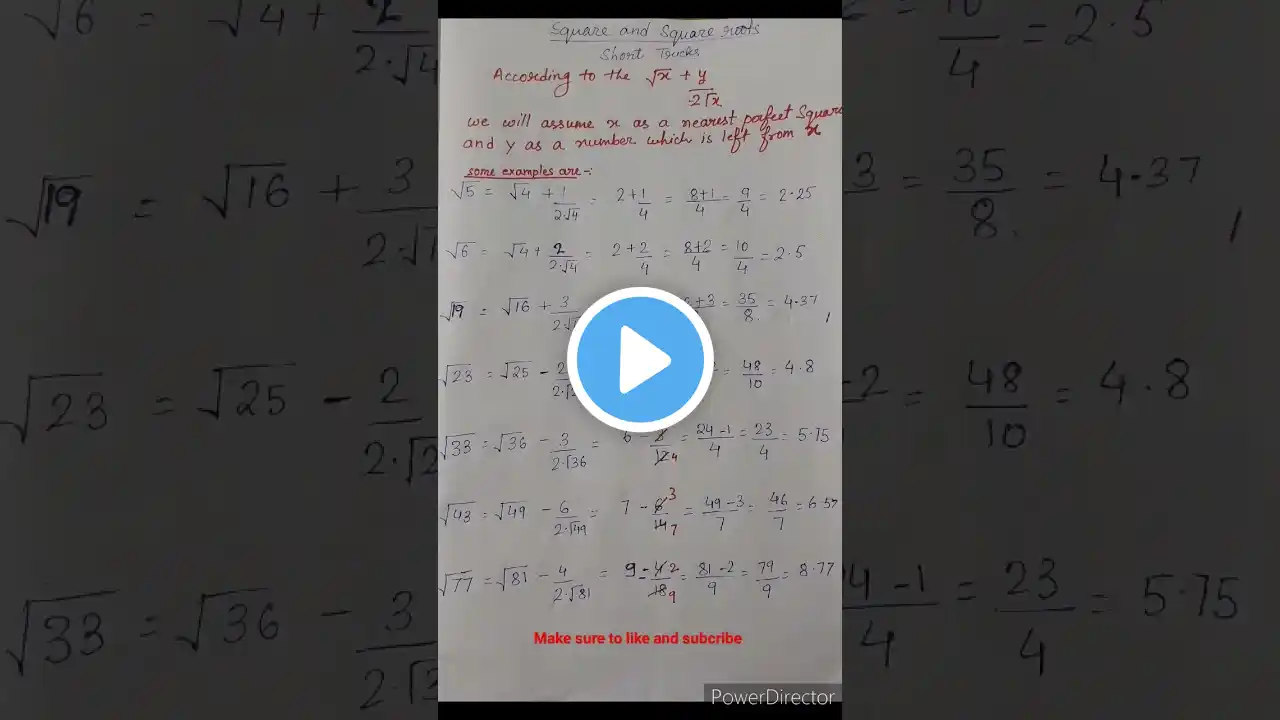 Square and Square roots
Short Tricks
According to the √x + y/2√x
we will assume x as a nearest perfect Square
and y as a number which is left from x
some examples are -:
√5 = √4 + 1/2·√4 = 2 + 1/4 = 8+1/4 = 9/4 = 2·25
√6 = √4 + 2/2·√4 = 2 + 2/4 = 8+2/4 = 10/4 = 2·5
√19 = √16 + 3/2·√1 + 3 = 35/8. = 4·37
√23 = √25 - 2/2·√2 = 48/10 = 4·8
√33 = √36 - 3/2·√36 = 6 - 3/12 4 = 24-1/4 = 23/4 = 5·75
√43 = √49 - 6/2·√49 = 7 - 6 3/14 7 = 49-3/7 = 46/7 = 6·57
√77 = √81 - 4/2·√81 = 9 - 4 2/18 9 = 81-2/9 = 79/9 = 8·77
Make sure to like and subcribe
PowerDirector
√6 = √4 + 2/2·√4
√19 = √16 + 3/2·√1
√23 = √25 - 2/2·√2
√33 = √36 - 3/2·√3
= 10/4 = 2·5
3 = 35/8. = 4·37
-2 = 48/10 = 4·8
4-1/4 = 23/4 = 5·75